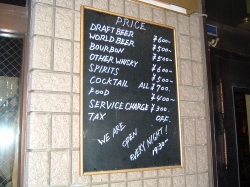 PRICE
DRAFT BEER ¥600-
WORLD BEER ¥500~
BOURBON ¥500~
OTHER WHISKY ¥500~
SPIRITS ¥600~
COCKTAIL ALL ¥700-
FOOD ¥400~
SERVICE CHARGE ¥300-
TAX OFF.
WE ARE
OPEN
EVERY NIGHT!
19:30~